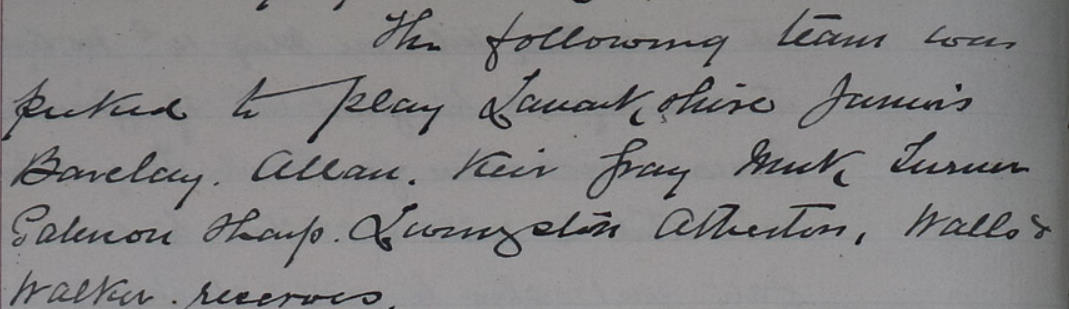 The following team was
picked to play Lanarkshire Juniors
Barclay. Allan. Keir Gray Turner
Salmon Sharp. Livingston Atherton, Walls &
Walker. reserves.